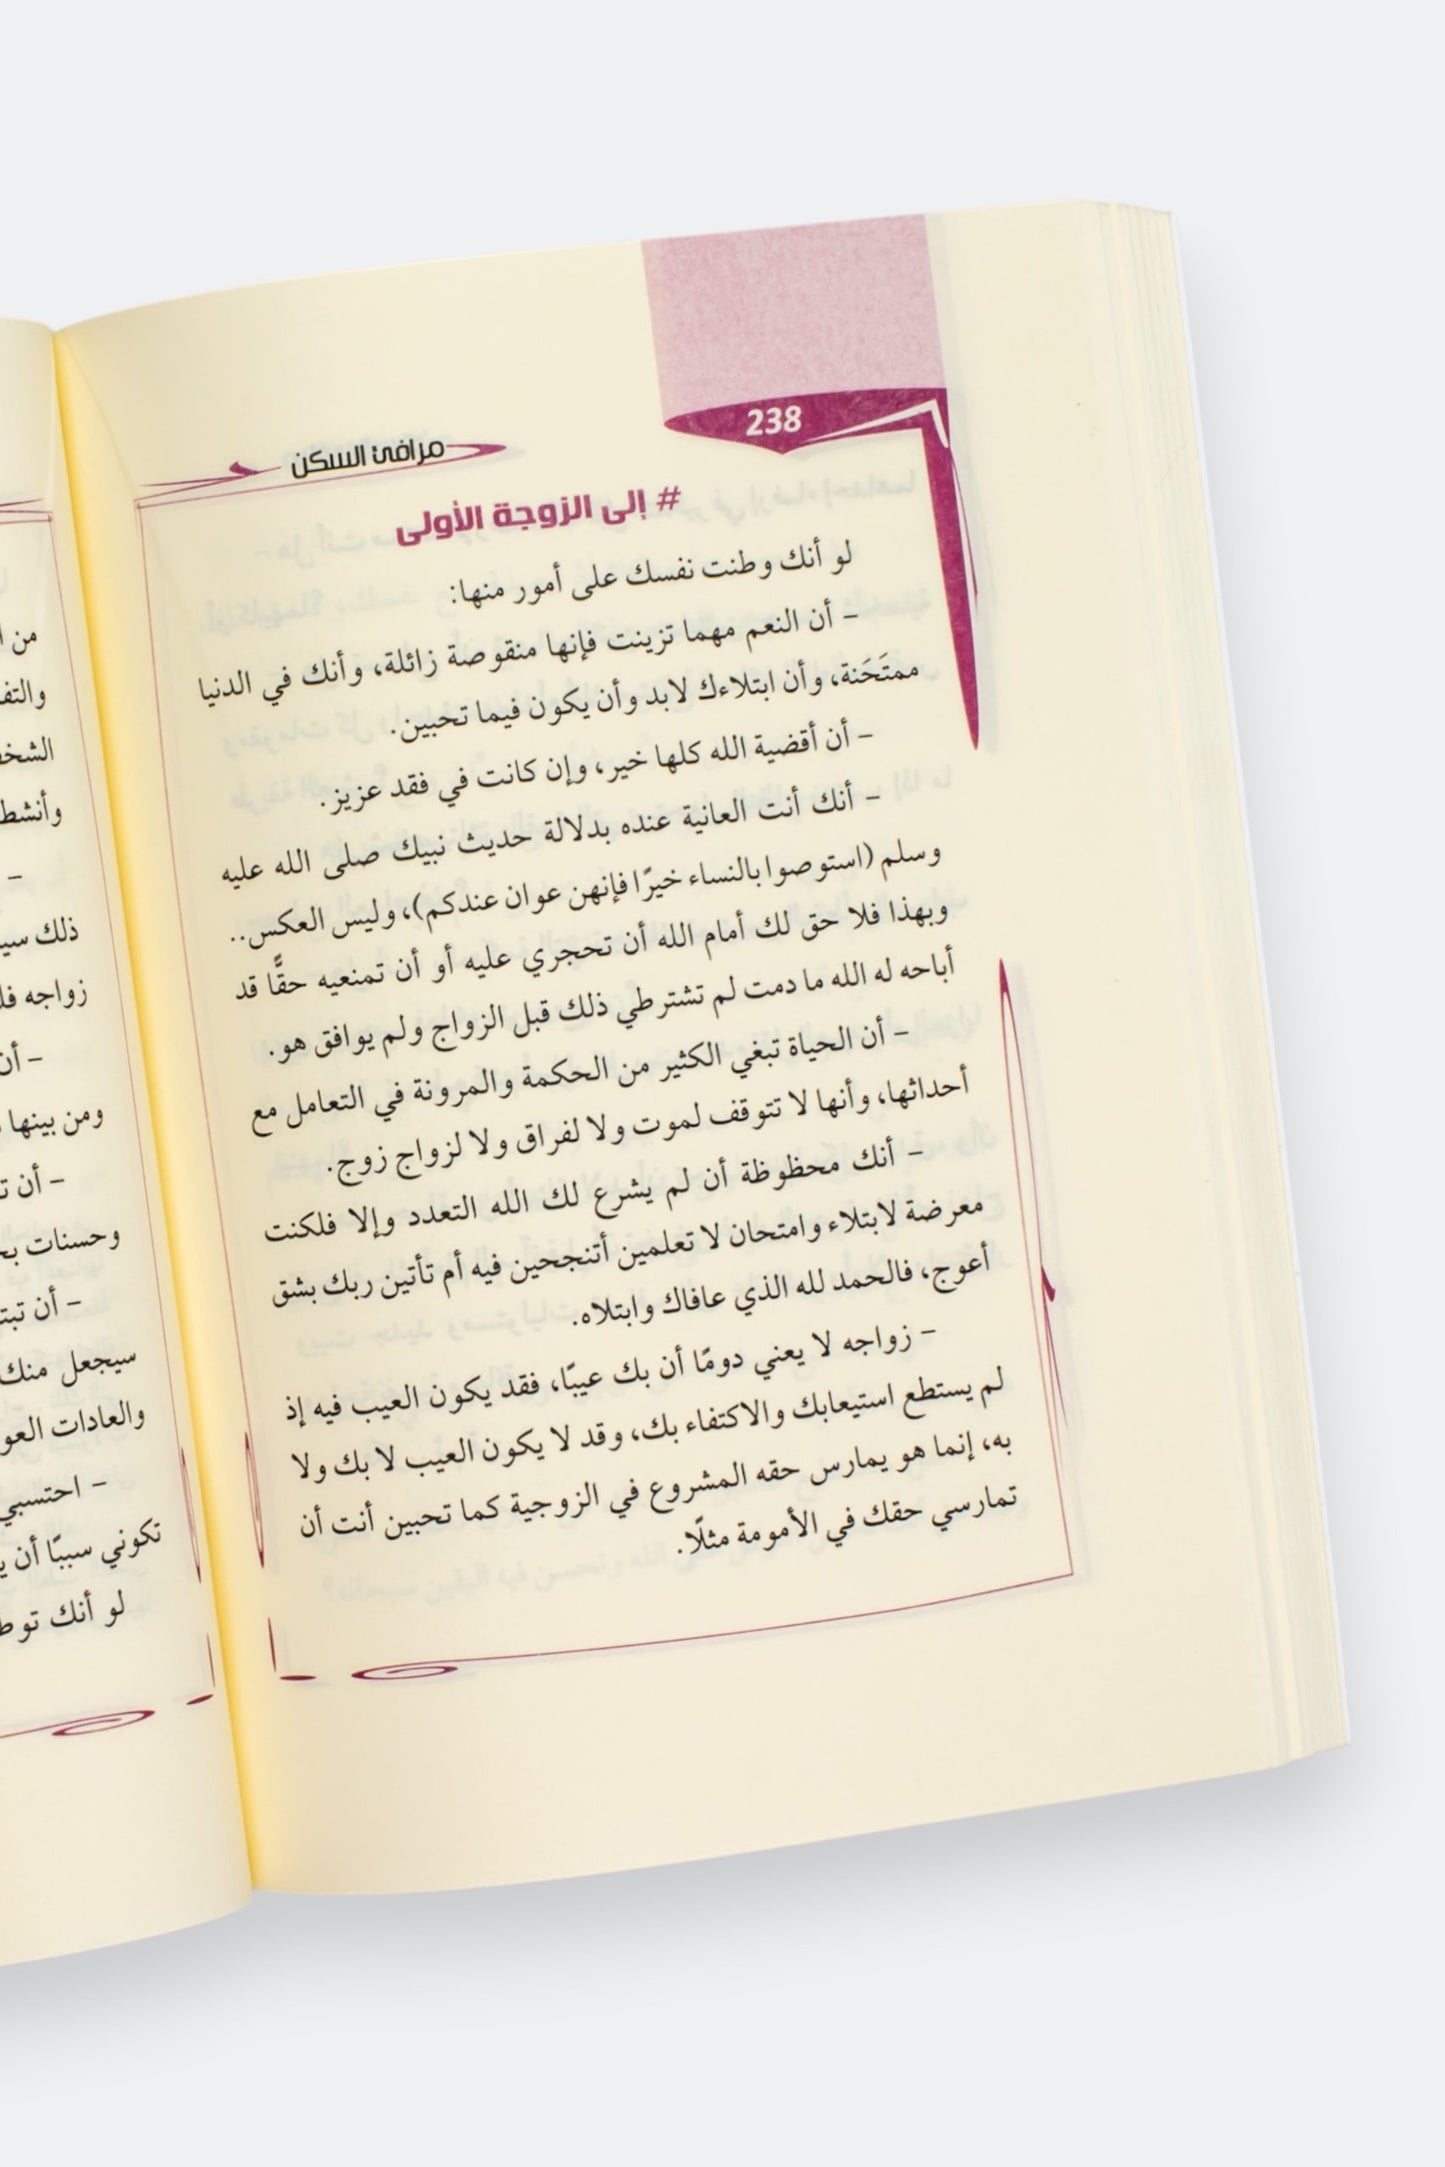 238
مرافئ السكن
# إلى الزوجة الأولى
لو أنك وطنت نفسك على أمور منها:
- أن النعم مهما تزينت فإنها منقوصة زائلة، وأنك في الدنيا
ممتَحَنة، وأن ابتلاءك لابد وأن يكون فيما تحبين.
- أن أقضية الله كلها خير، وإن كانت في فقد عزيز.
- أنك أنت العانية عنده بدلالة حديث نبيك صلى الله عليه
وسلم (استوصوا بالنساء خيرًا فإنهن عوان عندكم)، وليس العكس..
وبهذا فلا حق لك أمام الله أن تحجري عليه أو أن تمنعيه حقًّا قد
أباحه له الله ما دمت لم تشترطي ذلك قبل الزواج ولم يوافق هو.
- أن الحياة تبغي الكثير من الحكمة والمرونة في التعامل مع
أحداثها، وأنها لا تتوقف لموت ولا لفراق ولا لزواج زوج.
- أنك محظوظة أن لم يشرع لك الله التعدد وإلا فلكنت
معرضة لابتلاء وامتحان لا تعلمين أتنجحين فيه أم تأتين ربك بشق
أعوج، فالحمد لله الذي عافاك وابتلاه.
- زواجه لا يعني دومًا أن بك عيبًا، فقد يكون العيب فيه إذ
لم يستطع استيعابك والاكتفاء بك، وقد لا يكون العيب لا بك ولا
به، إنما هو يمارس حقه المشروع في الزوجية كما تحبين أنت أن
تمارسي حقك في الأمومة مثلًا.
من
وأنشط
-
ذلك
زواجه
- أن
ومن بينها
- أن
وحسنات
- أن
سيجعل منك
والعادات
- احتسبي
تكوني سببًا أن
لو أنك